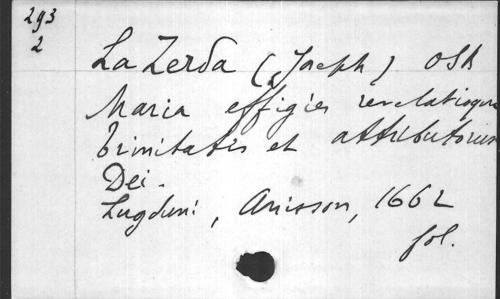 293
2
La Zerda (Joseph) OSB
Maria effigies revelatioque
trinitatis et attributorum
Dei.
Lugduni, Anisson, 1662
fol.